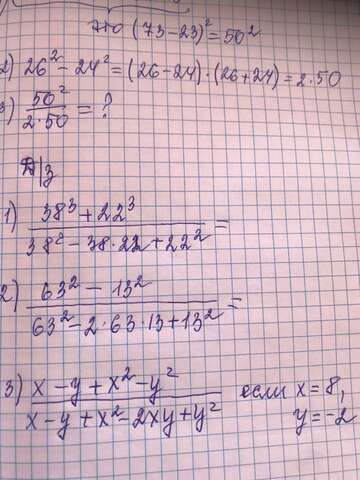 это (73-23)² = 50²
2) 26² - 24² = (26-24)·(26+24) = 2·50
3) 50²/2·50 = ?
Д/з
1) 38³ + 22³ / 38² - 38·22 + 22² =
2) 63² - 13² / 63² - 2·63·13 + 13² =
3) x - y + x² - y² / x - y + x² - 2xy + y² если x = 8,
y = -2